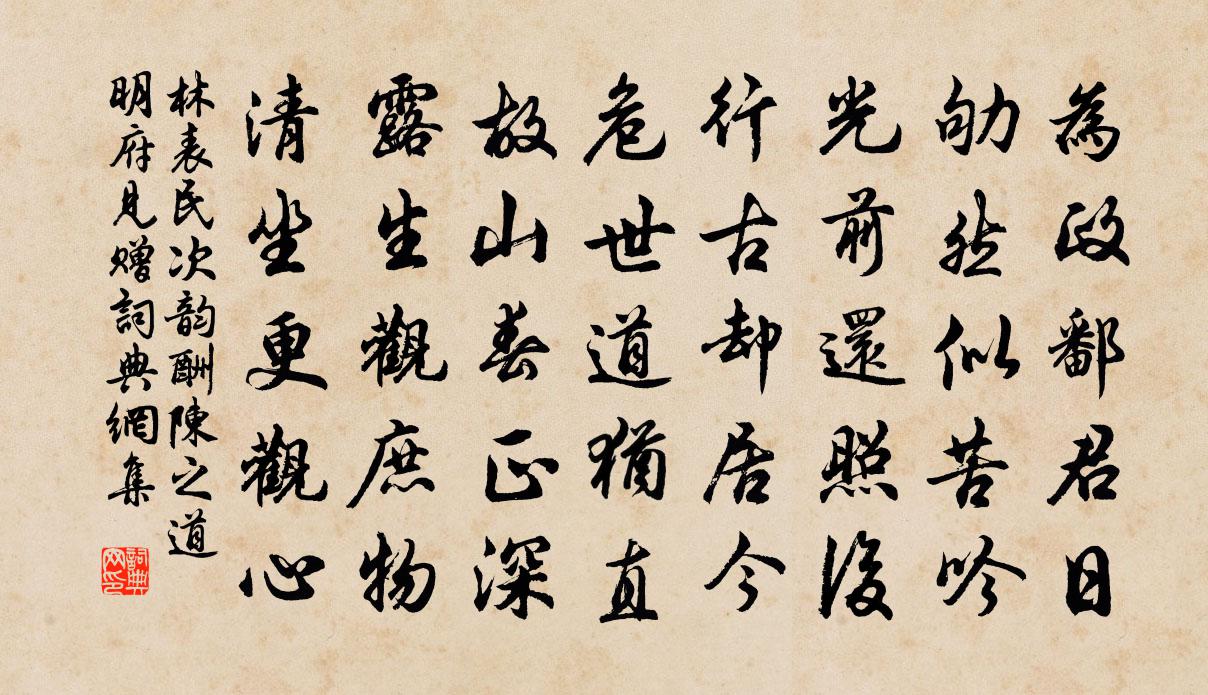 為政鄱君日
劬然似苦吟
光前還照後
行古却居今
危世道猶直
故山春正深
露生觀庶物
清坐更觀心
林表民次韵酬陳之道
明府見贈詞典網集
詞典网印